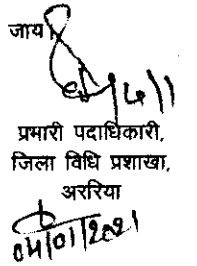 जाय।
प्रभारी पदाधिकारी,
जिला विधि प्रशाखा,
अररिया
04/01/2021